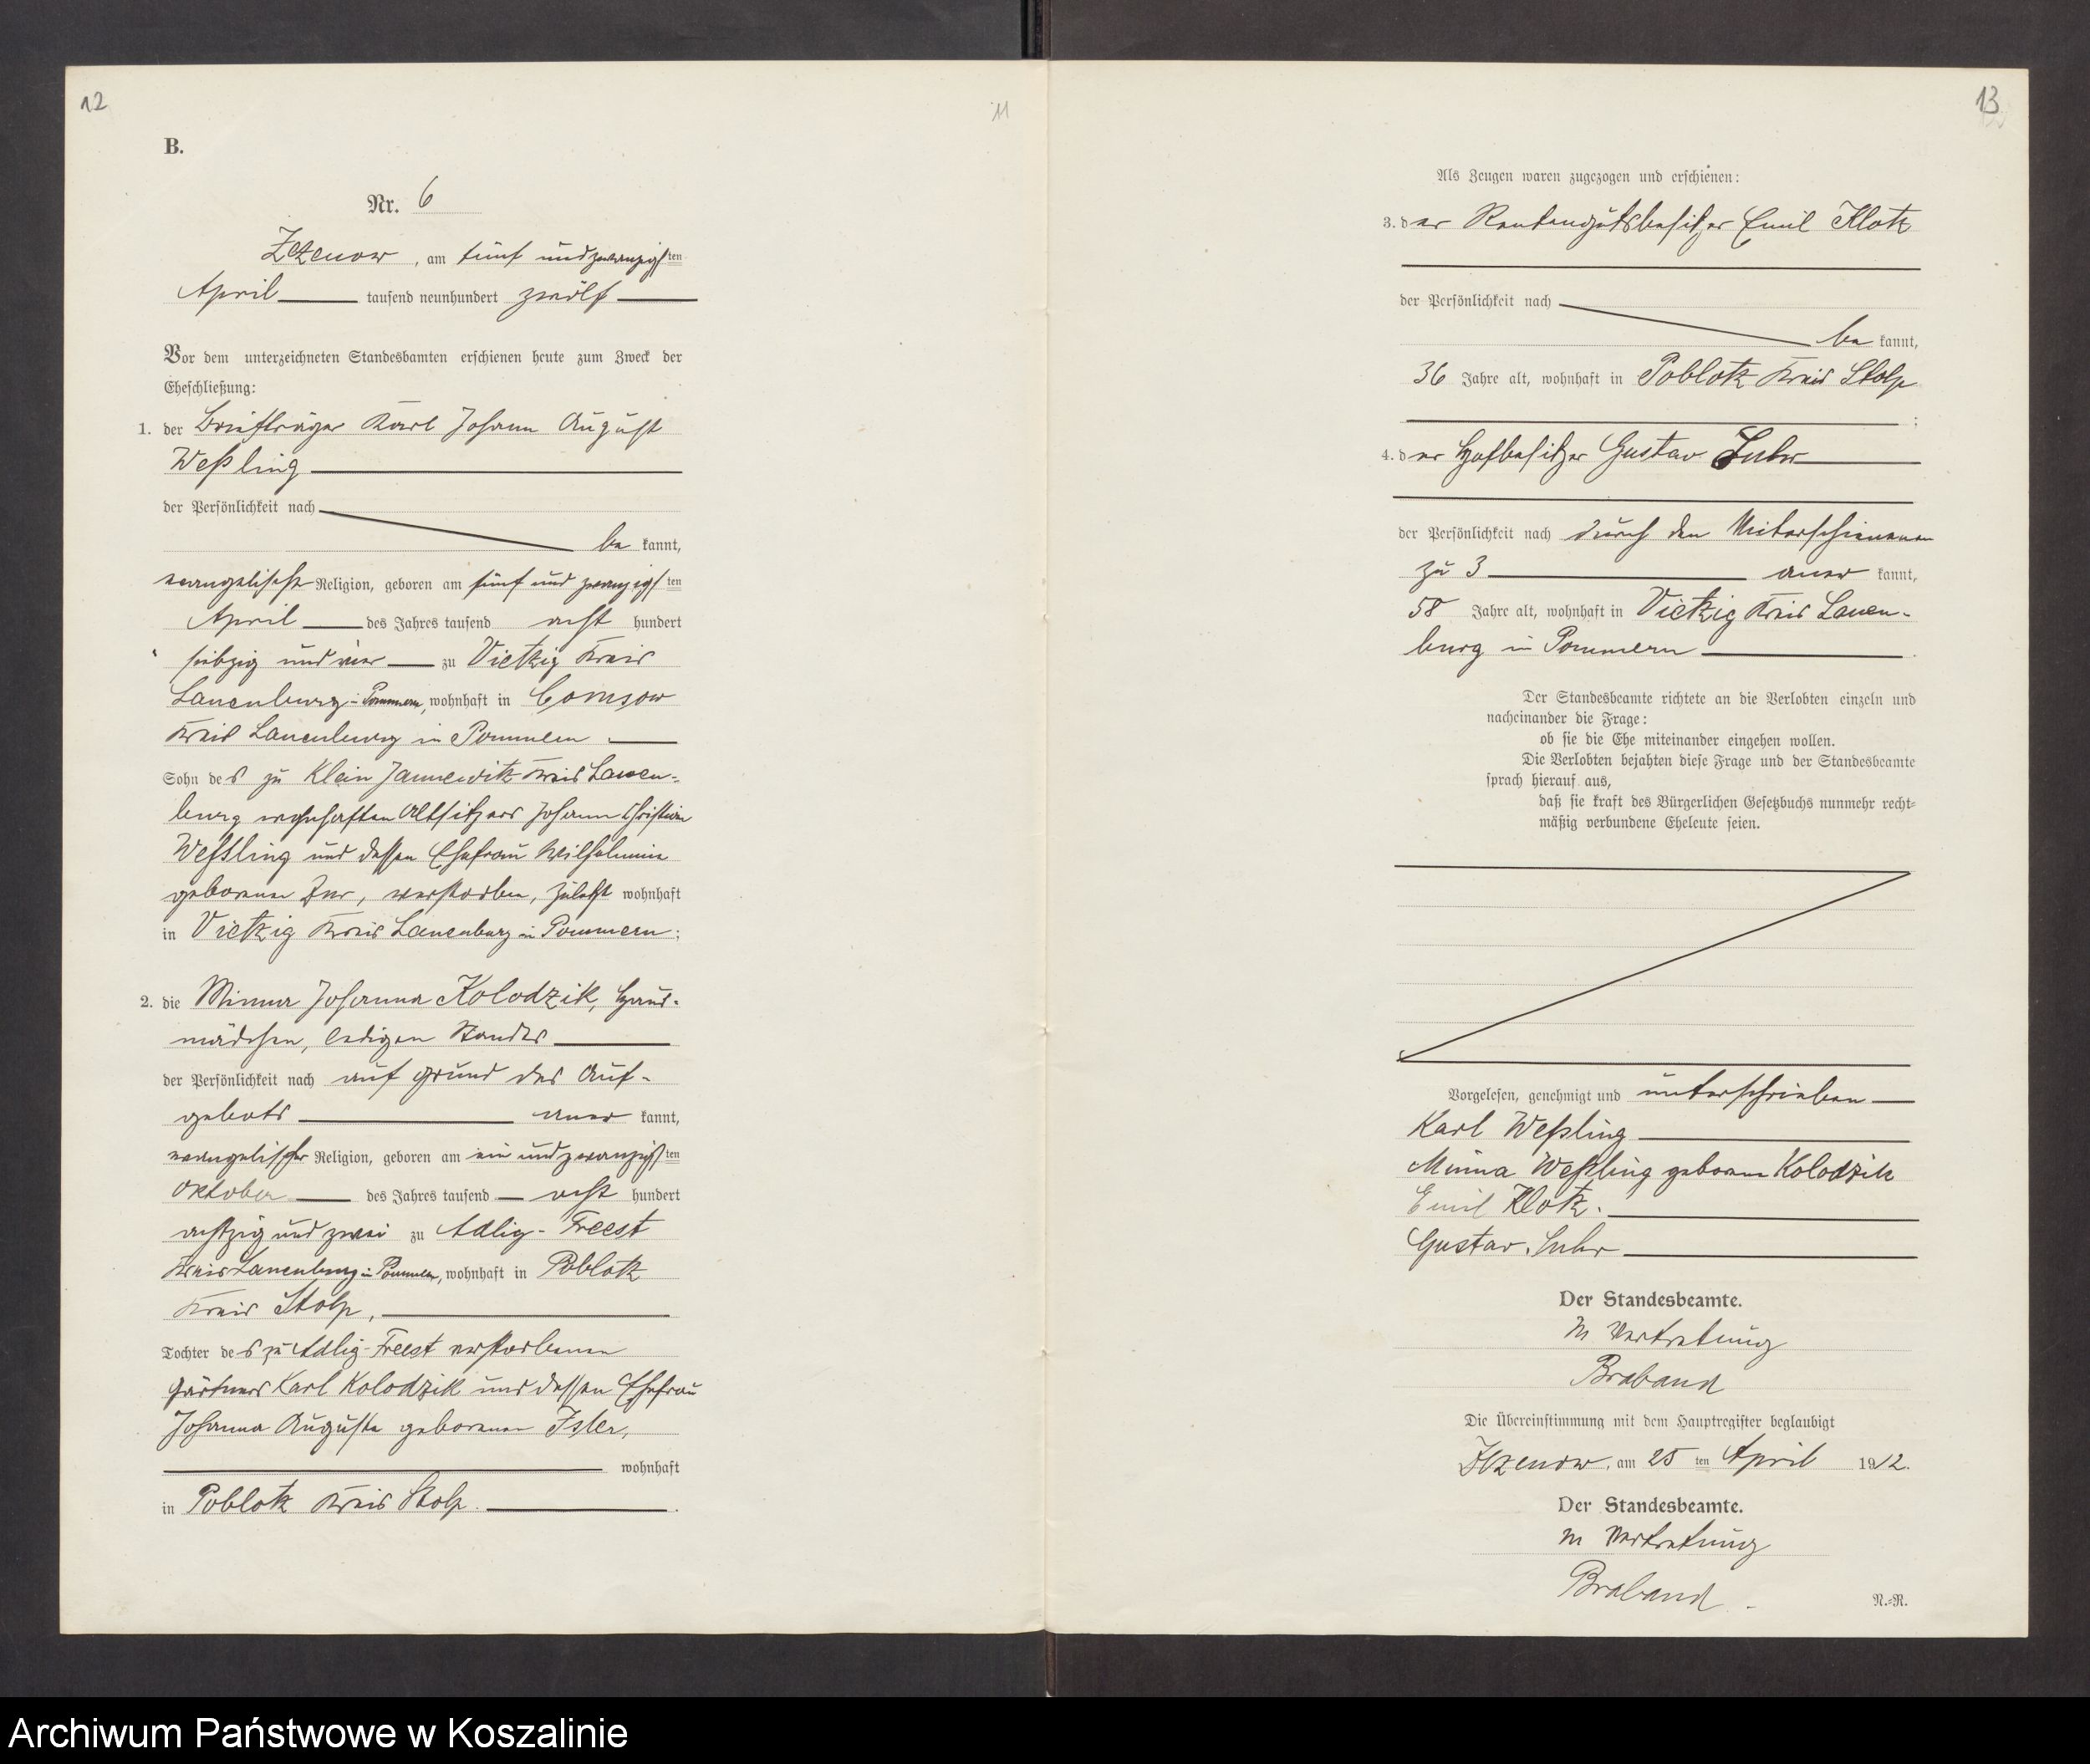 12
11
B.
Nr. 6
Zezenow, am fünf und zwanzigsten
April tausend neunhundert zwölf
Vor dem unterzeichneten Standesbamten erschienen heute zum Zweck der
Eheschließung:
1. der Briefträger Karl Johann August
Weßling
der Persönlichkeit nach
be kannt,
evangelischer Religion, geboren am fünf und zwanzigsten
April des Jahres tausend acht hundert
siebzig und vier zu Vietzig Kreis
Lauenburg in Pommern, wohnhaft in
Kreis Lauenburg in Pommern
Sohn des zu Klein Jannewitz Kreis Lauen-
burg wohnhaften Altsitzers Johann Christian
Weßling und dessen Ehefrau Wilhelmine
geborene, verstorben, zuletzt wohnhaft
in Vietzig Kreis Lauenburg in Pommern;
2. die Minna Johanna Kolodzik, Haus-
mädchen, ledigen Standes
der Persönlichkeit nach auf Grund des Auf-
gebots aner kannt,
evangelischer Religion, geboren am ein und zwanzigsten
Oktober des Jahres tausend acht hundert
achtzig und zwei zu Adlig-Freest
Kreis Lauenburg in Pommern, wohnhaft in Poblotz
Kreis Stolp,
Tochter des zu Adlig-Freest verstorbenen
Gärtners Karl Kolodzik und dessen Ehefrau
Johanna Auguste geborenen Isler,
wohnhaft
in Poblotz Kreis Stolp.
13
Als Zeugen waren zugezogen und erschienen:
3. der Rentengutsbesitzer Emil Klotz
der Persönlichkeit nach
be kannt,
36 Jahre alt, wohnhaft in Poblotz Kreis Stolp
;
4. der Hofbesitzer Gustav Suhr
der Persönlichkeit nach durch den Miterschienenen
zu 3 aner kannt,
58 Jahre alt, wohnhaft in Vietzig Kreis Lauen-
burg in Pommern.
Der Standesbeamte richtete an die Verlobten einzeln und
nacheinander die Frage:
ob sie die Ehe miteinander eingehen wollen.
Die Verlobten bejahten diese Frage und der Standesbeamte
sprach hierauf aus,
daß sie kraft des Bürgerlichen Gesetzbuchs nunmehr recht-
mäßig verbundene Eheleute seien.
Vorgelesen, genehmigt und unterschrieben
Karl Weßling
Minna Weßling geborene Kolodzik
Emil Klotz.
Gustav Suhr
Der Standesbeamte.
In Vertretung
Braband
Die Übereinstimmung mit dem Hauptregister beglaubigt
Zezenow, am 25 ten April 1912.
Der Standesbeamte.
In Vertretung
Braband
N.-R.
Archiwum Państwowe w Koszalinie